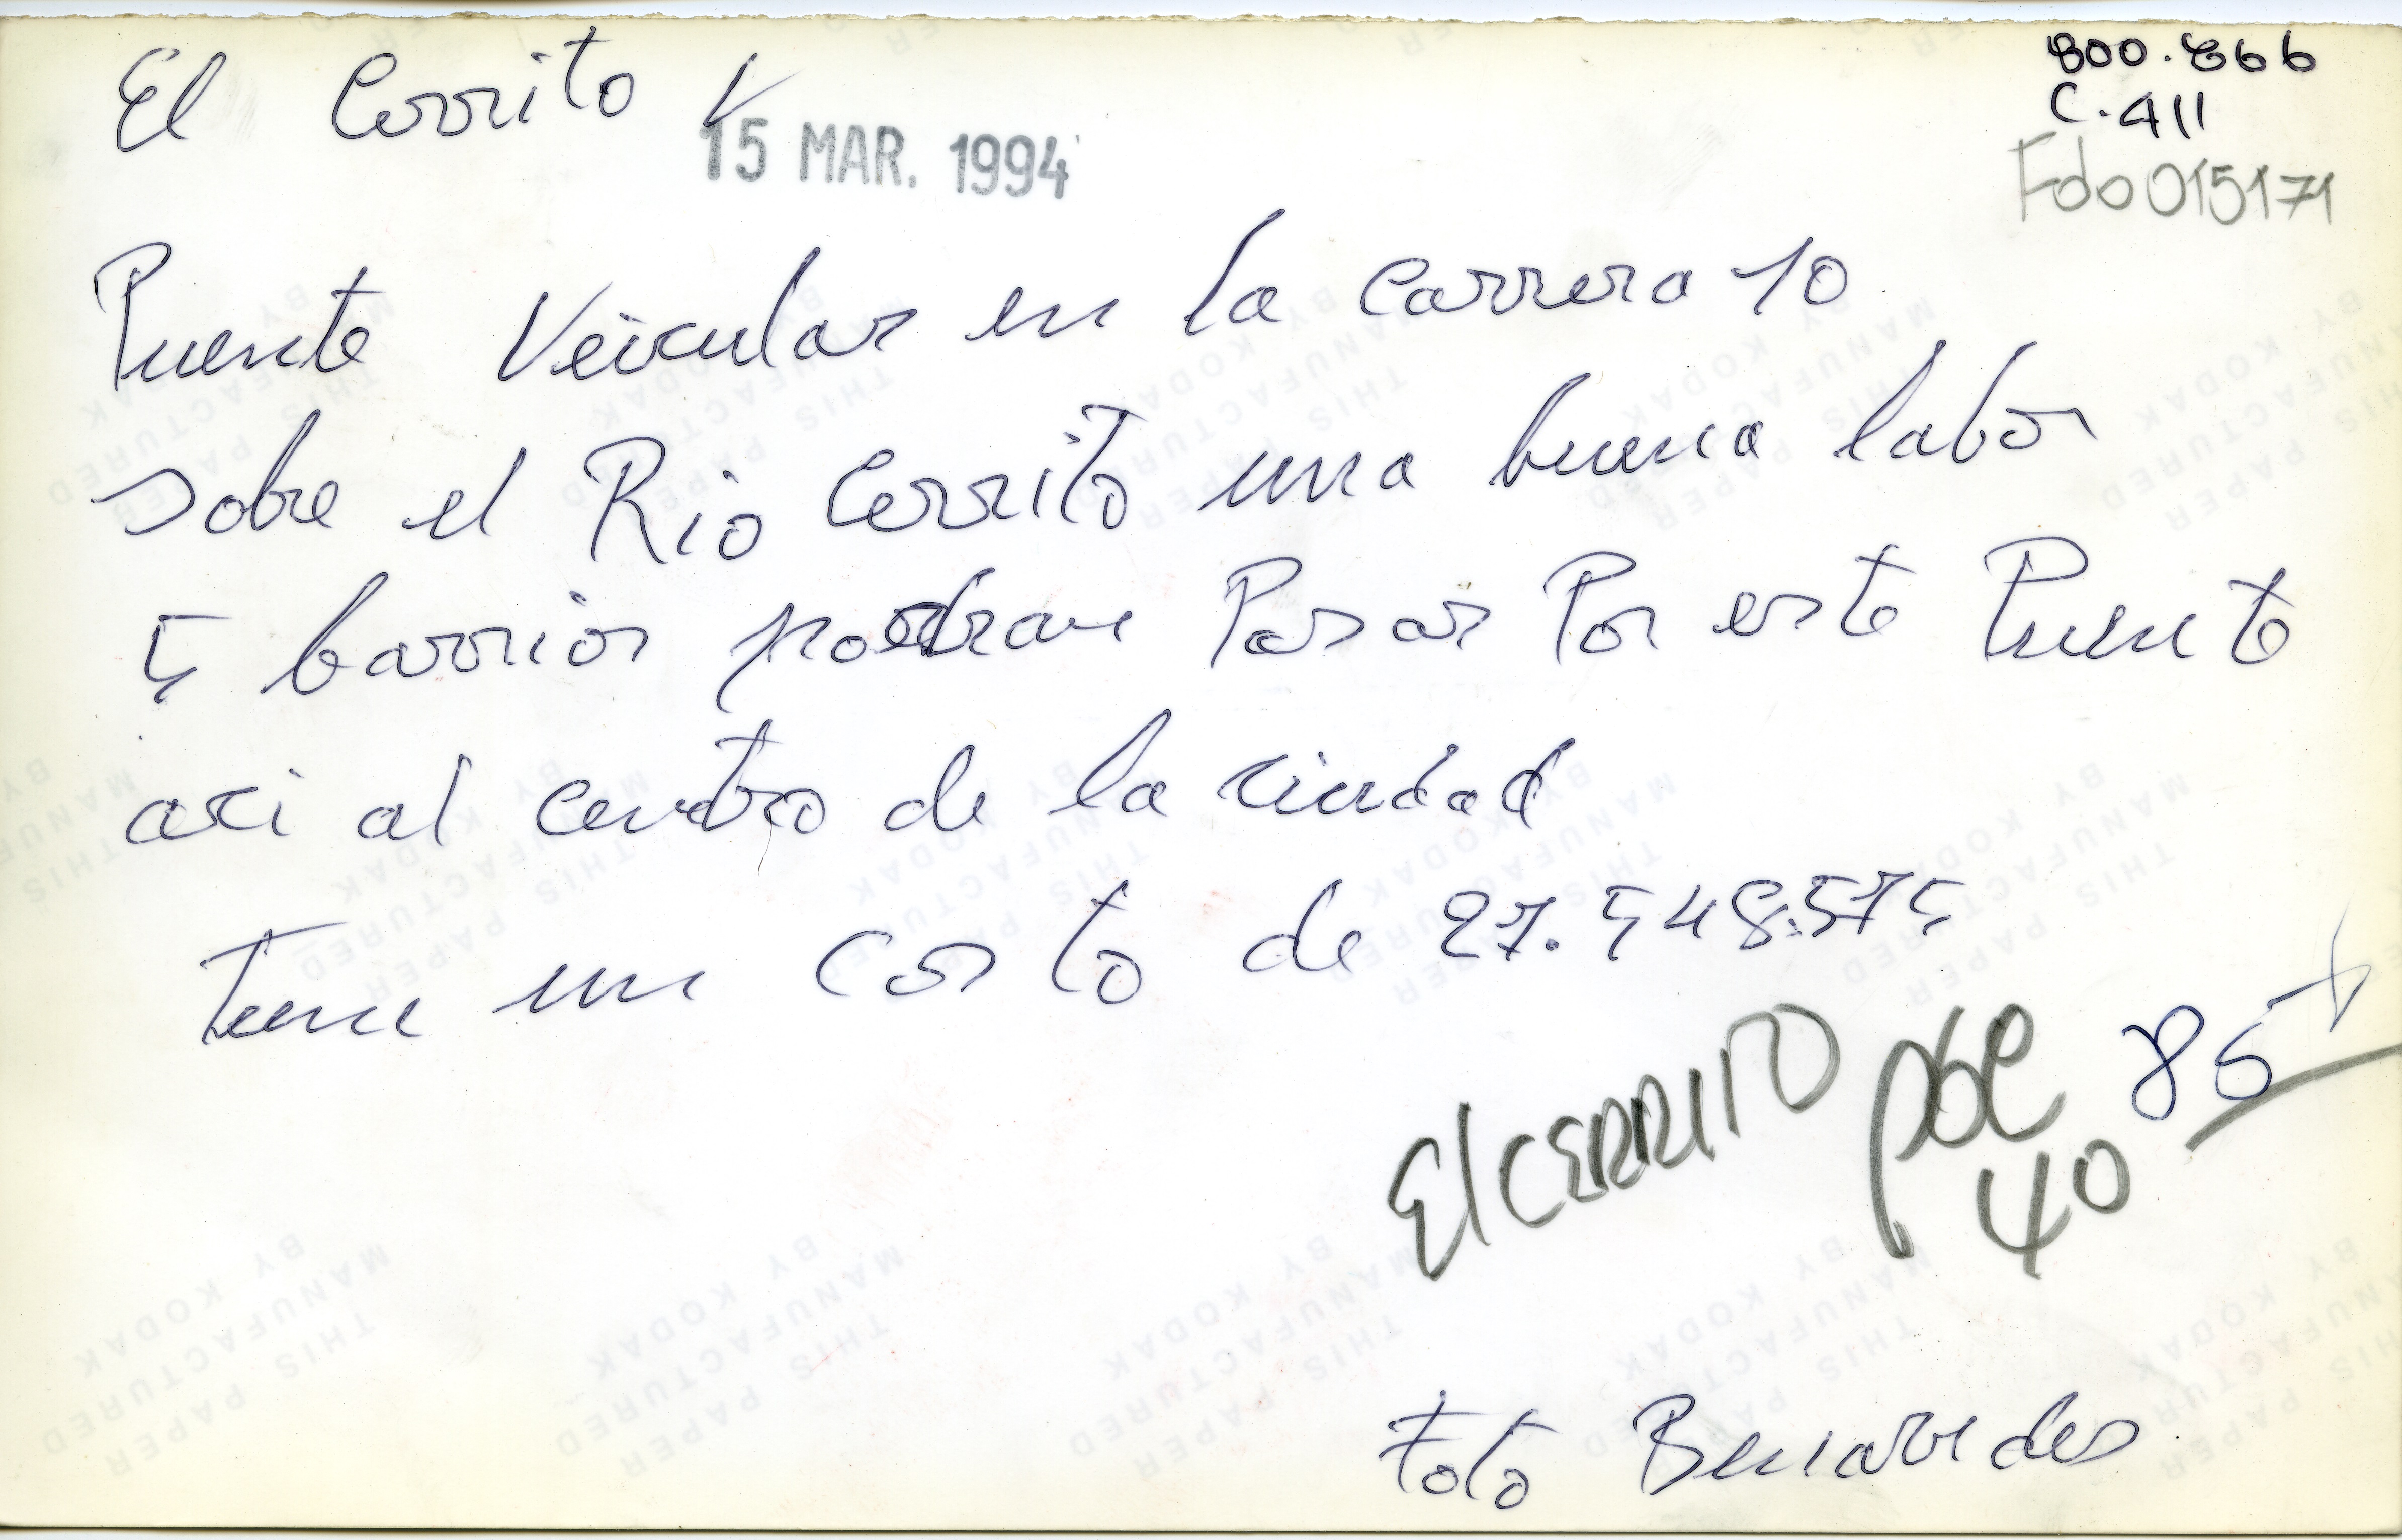 El Cerrito V
15 MAR. 1994
800.866
C.411
Fdo015171
Puente Veicular en la carrera 10
sobre el Rio Cerrito una buena labor
5 barrios podran Pasar Por este Puente
asi al centro de la ciudad
tiene un costo de 27.548.575
El CERRITO pbe 85
40
Foto Benavides
THIS PAPER MANUFACTURED BY KODAK